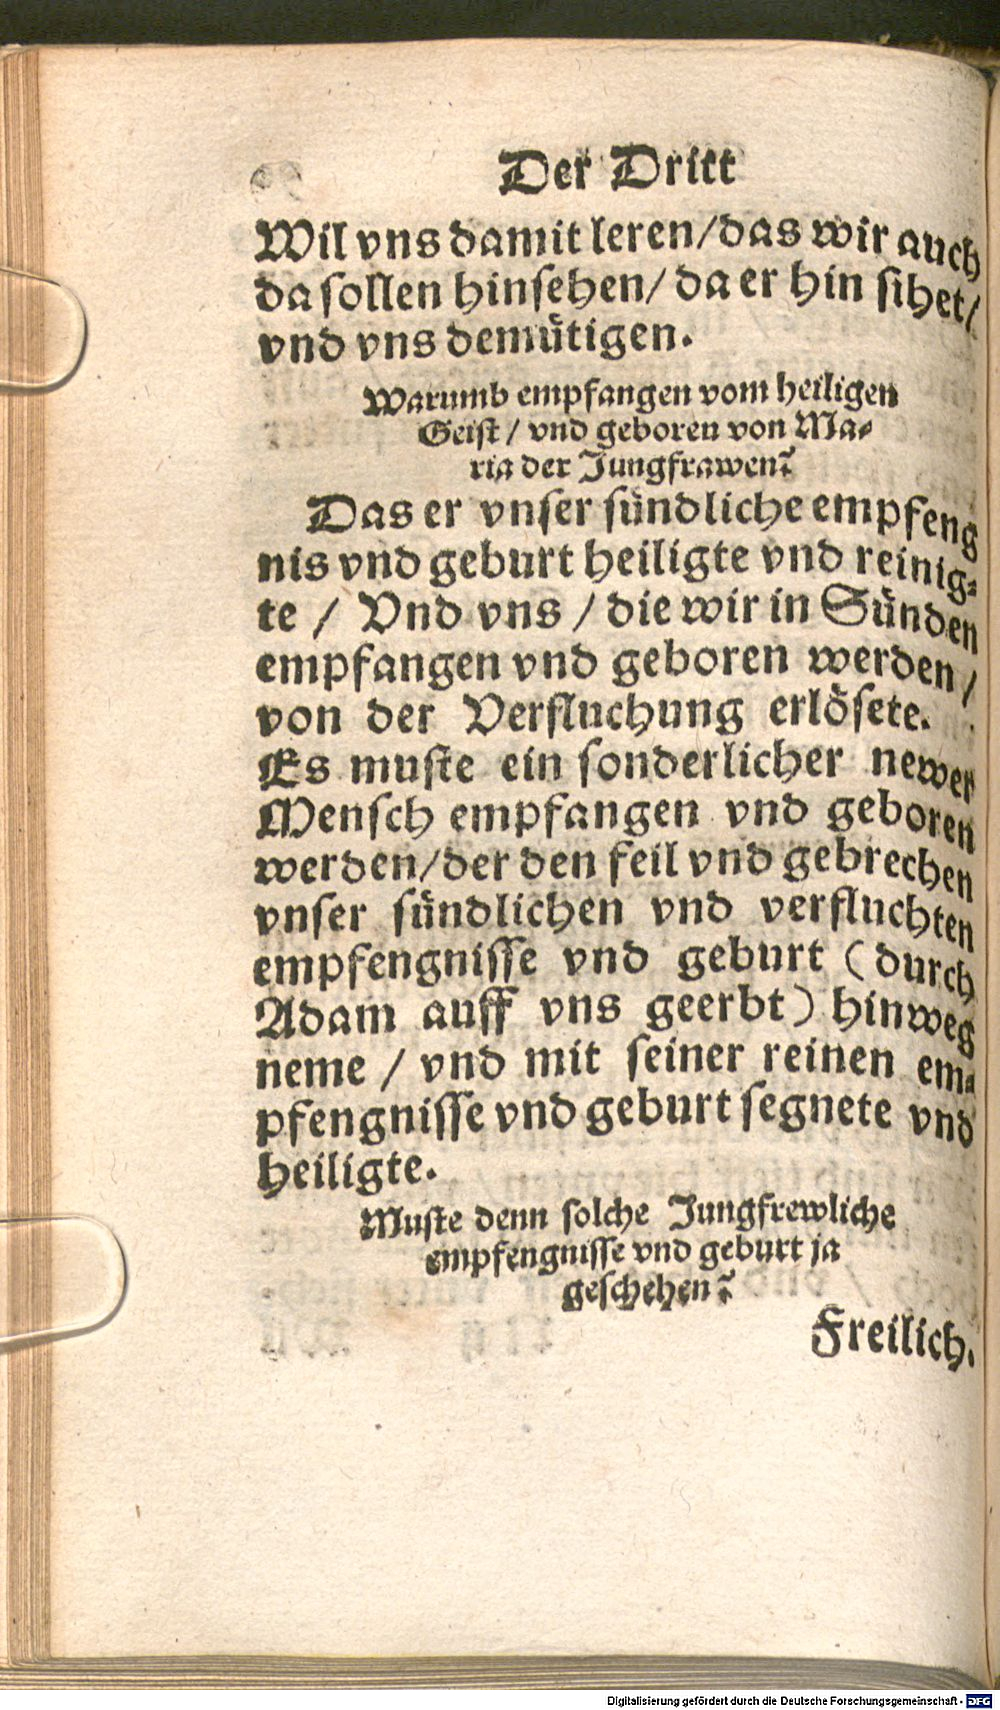 Der Dritt
Wil vns damit leren/das wir auch
da sollen hinsehen/ da er hin sihet/
vnd vns demütigen.
Warumb empfangen vom heiligen
Geist / vnd geboren von Ma-
ria der Jungfrawen?
Das er vnser sündliche empfeng
nis vnd geburt heiligte vnd reinig-
te / Vnd vns / die wir in Sünden
empfangen vnd geboren werden /
von der Verfluchung erlösete.
Es muste ein sonderlicher newer
Mensch empfangen vnd geboren
werden/der den feil vnd gebrechen
vnser sündlichen vnd verfluchten
empfengnisse vnd geburt (durch
Adam auff vns geerbt) hinweg
neme / vnd mit seiner reinen em-
pfengnisse vnd geburt segnete vnd
heiligte.
Muste denn solche Jungfrewliche
empfengnisse vnd geburt ja
geschehen?
Freilich.
Digitalisierung gefördert durch die Deutsche Forschungsgemeinschaft - DFG